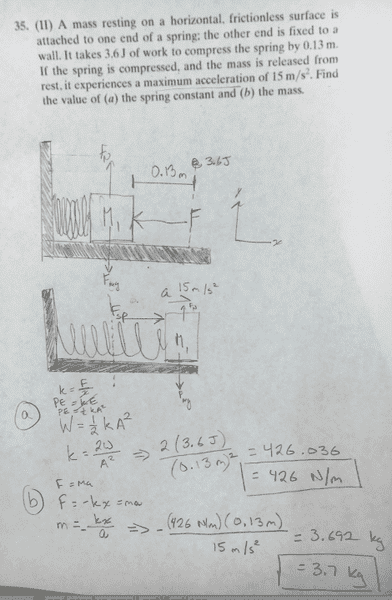 35. (II) A mass resting on a horizontal, frictionless surface is
attached to one end of a spring; the other end is fixed to a
wall. It takes 3.6 J of work to compress the spring by 0.13 m.
If the spring is compressed, and the mass is released from
rest, it experiences a maximum acceleration of 15 m/s². Find
the value of (a) the spring constant and (b) the mass.
0.13m
3.6J
M₁
F
y
x
Fmg
a 15m/s²
Fsp
M₁
Fmg
k = F/x
PE = KE
PE = ½ kA²
(a) W = ½ kA²
k = 2W/A² ⇒ 2(3.6J)/(0.13m)² = 426.036
= 426 N/m
F = ma
(b) F = -kx = ma
m = -kx/a ⇒ -(426 N/m)(0.13m)/15 m/s² = 3.692 kg
= 3.7 kg